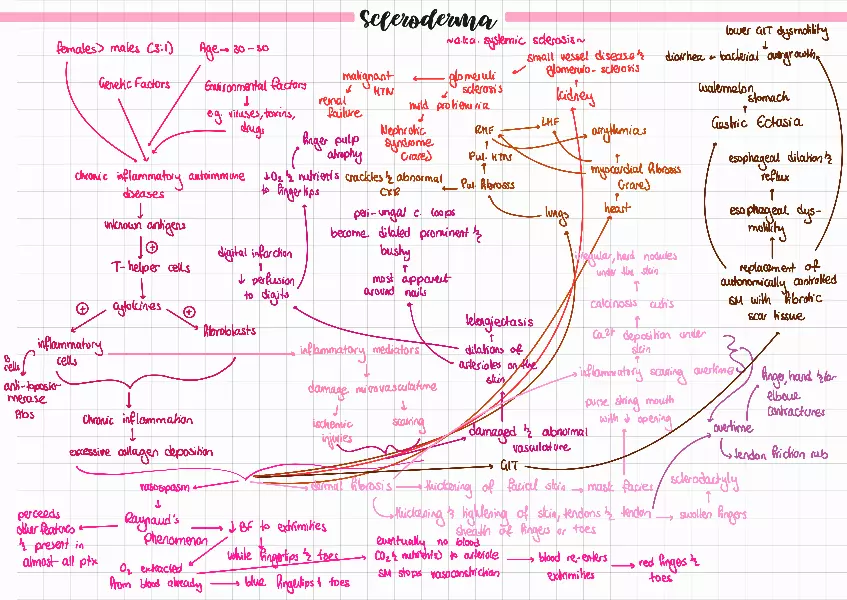 Scleroderma
~a.k.a. systemic sclerosis~
females > males (3:1)
Age → 30-50
Genetic Factors
Environmental Factors
e.g. viruses, toxins,
drugs
chronic inflammatory autoimmune
diseases
unknown antigens
+
T-helper cells
cytokines
+
+
inflammatory
cells
fibroblasts
B
cells
anti-topoiso-
merase
Abs
chronic inflammation
excessive collagen deposition
finger pulp
atrophy
↓O2 & nutrients
to fingertips
digital infarction
↓ perfusion
to digits
malignant
HTN
renal
failure
glomeruli
sclerosis
mild proteinuria
Nephrotic
Syndrome
(rare)
small vessel disease &
glomerulo-sclerosis
kidney
RHF
LHF
arrythmias
Pul. HTN
crackles & abnormal
CXR
Pul. fibrosis
myocardial fibrosis
(rare)
lungs
heart
peri-ungal c. loops
become dilated prominent &
bushy
most apparent
around nails
telengiectasis
dilations of
arterioles on the
skin
damaged & abnormal
vasculature
inflammatory mediators
damage microvasculature
ischemic
injuries
scaring
irregular, hard nodules
under the skin
calcinosis cutis
Ca2+ deposition under
skin
inflammatory scaring overtime
purse string mouth
with ↓ opening
lower GIT dysmotility
diarrhea ← bacterial overgrowth
watermelon
stomach
Gastric Ectasia
esophageal dilation &
reflux
esophageal dys-
motility
replacement of
autonomically controlled
SM with fibrotic
scar tissue
finger, hand &/or
elbow
contractures
overtime
tendon friction rub
GIT
dermal fibrosis → thickening of facial skin → mask facies
sclerodactyly
thickening & tightening of skin, tendons & tendon
sheath of fingers or toes
swollen fingers
vasospasm
Raynaud's
Phenomenon
preceeds
other features
& present in
almost-all ptx
↓BF to extrimities
white fingertips & toes
O2 extracted
from blood already
blue fingertips & toes
eventually no blood
(O2 & nutrients) to arteriole
SM stops vasoconstriction
blood re-enters
extrimities
red fingers &
toes